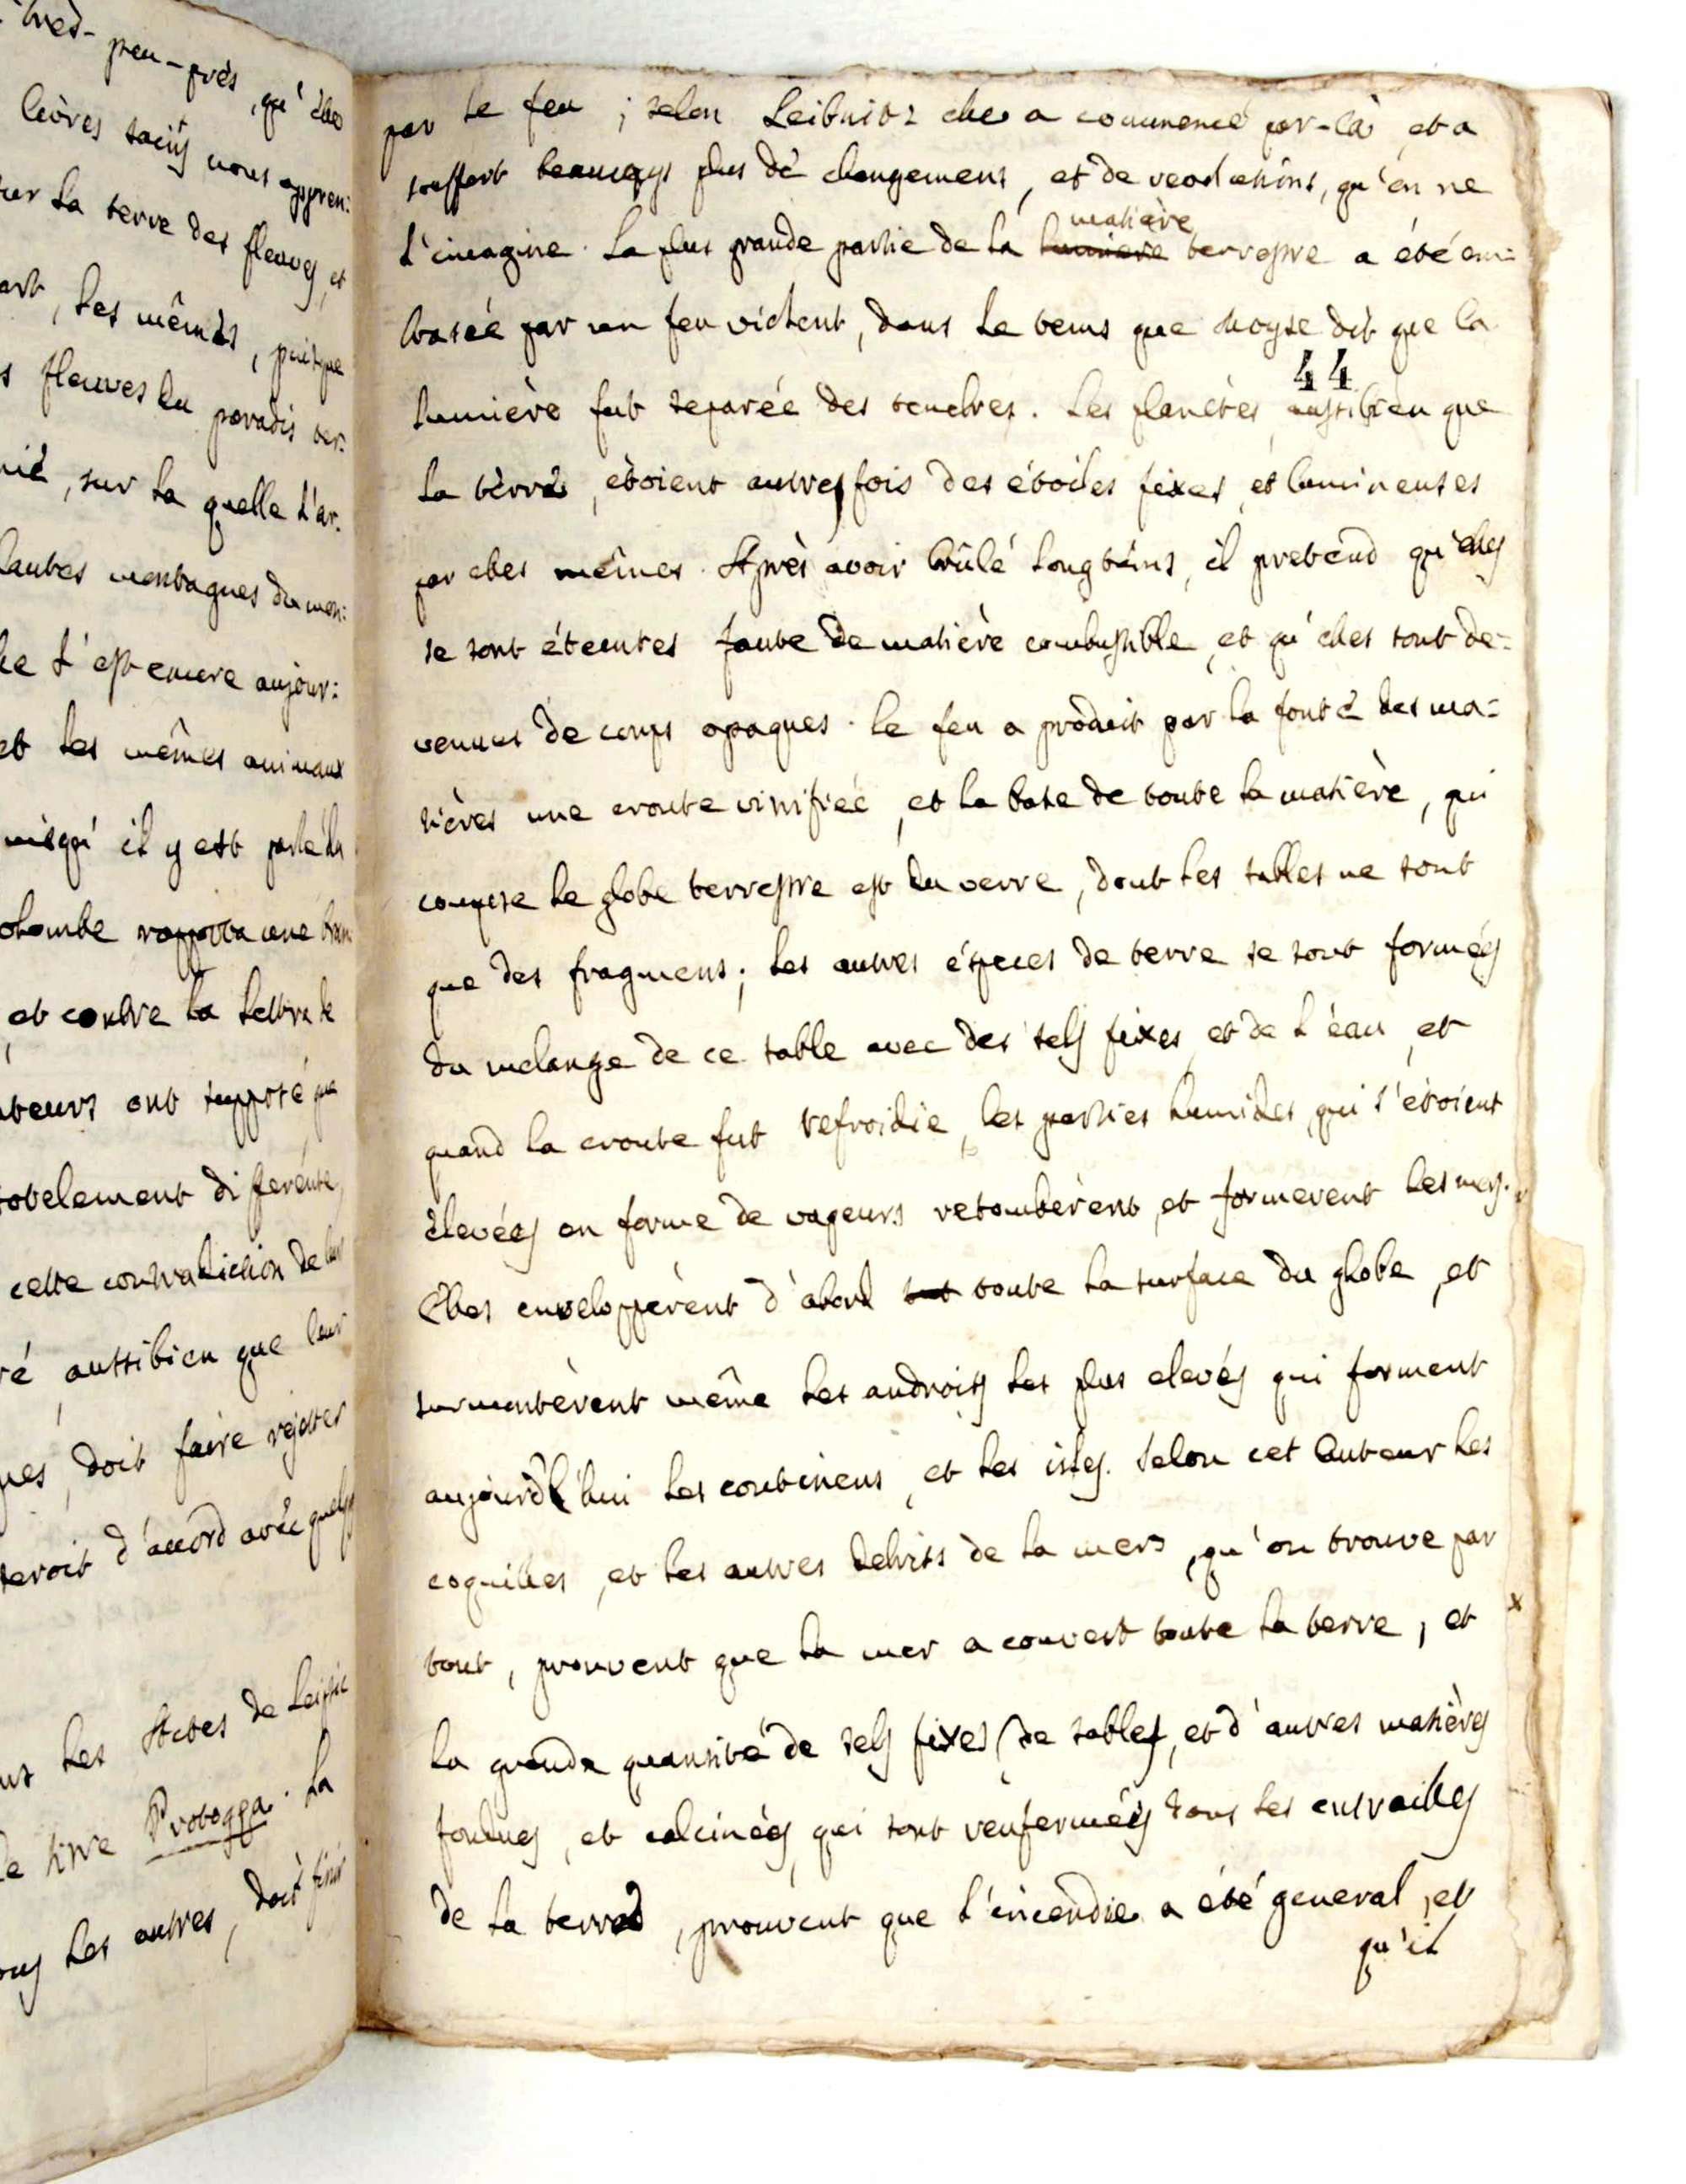 peu-près, qu'elle
livres sacrés nous appren:
sur la terre des fleuves, et
les mêmes, puisque
fleuves du paradis ter:
sur la quelle l'ar.
hautes montagnes du mon:
l'est encore aujour:
et les mêmes animaux
puisqu'il y est parlé du
colombe rapporta une bran
et contre la lettre de
ont supposé que
totalement differente,
cette contradiction de leur
aussibien que leur
doit faire rejetter
seroit d'accord avec quelqs
les Actes de Leipsic
livre Protogæa. La
les autres, doit finir
par le feu ; selon Leibnitz elle a commencé par-là, et a
souffert beaucoups plus de changemens, et de revolutions, qu'on ne
l'imagine. La plus grande partie de la lumiere matière terrestre a été em=
brasée par un feu violent, dans le tems que Moyse dit que la
44
lumière fut separée des tenebres. Les planètes, aussibien que
la terre, étoient autresfois des étoiles fixes, et lumineuses
par elles mêmes. Après avoir brûlé longtems, il pretend qu'elles
se sont éteintes faute de matière combustible, et qu'elles sont de=
venues de corps opaques. Le feu a produit par la fonte des ma=
tières une croute vitrifiée, et la base de toute la matière, qui
compose le globe terrestre est du verre, dont les sables ne sont
que des fragmens; les autres éspeces de terre se sont formées
du melange de ce sable avec des sels fixes, et de l'eau, et
quand la croute fut refroidie, les parties humides, qui s'étoient
élevées en forme de vapeurs retombèrent, et formerent les mers.
Elles enveloppèrent d'abord tout toute la surface du globe, et
surmontèrent même les androits les plus elevés qui forment
aujourd'hui les continens, et les isles. Selon cet Auteur les
coquilles, et les autres debriss de la mer, qu'on trouve par
tout, prouvent que la mer a couvert toute la terre, et
x
la grande quantité de sels fixes, de sables, et d'autres matières
fondues, et calcinées, qui sont renfermées dans les entrailles
de la terre, prouvent que l'incendie a été general, et
qu'il